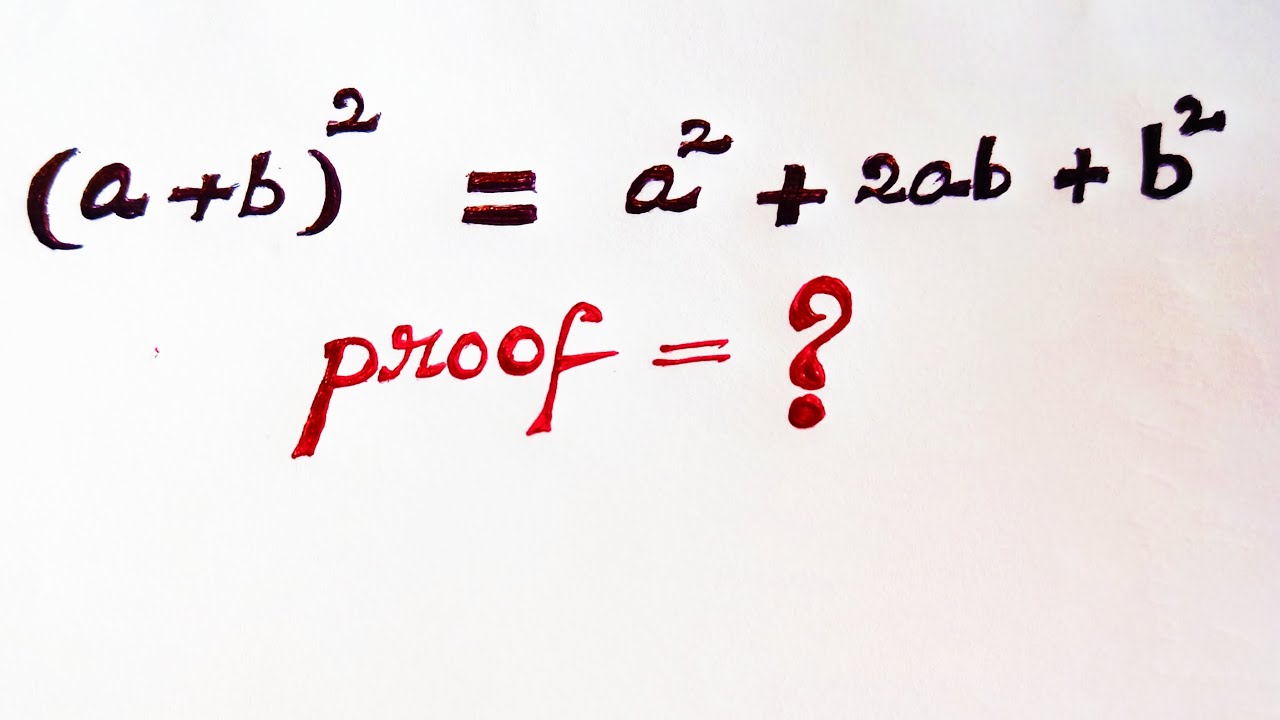 (a+b)² = a² + 2ab + b²
proof = ?